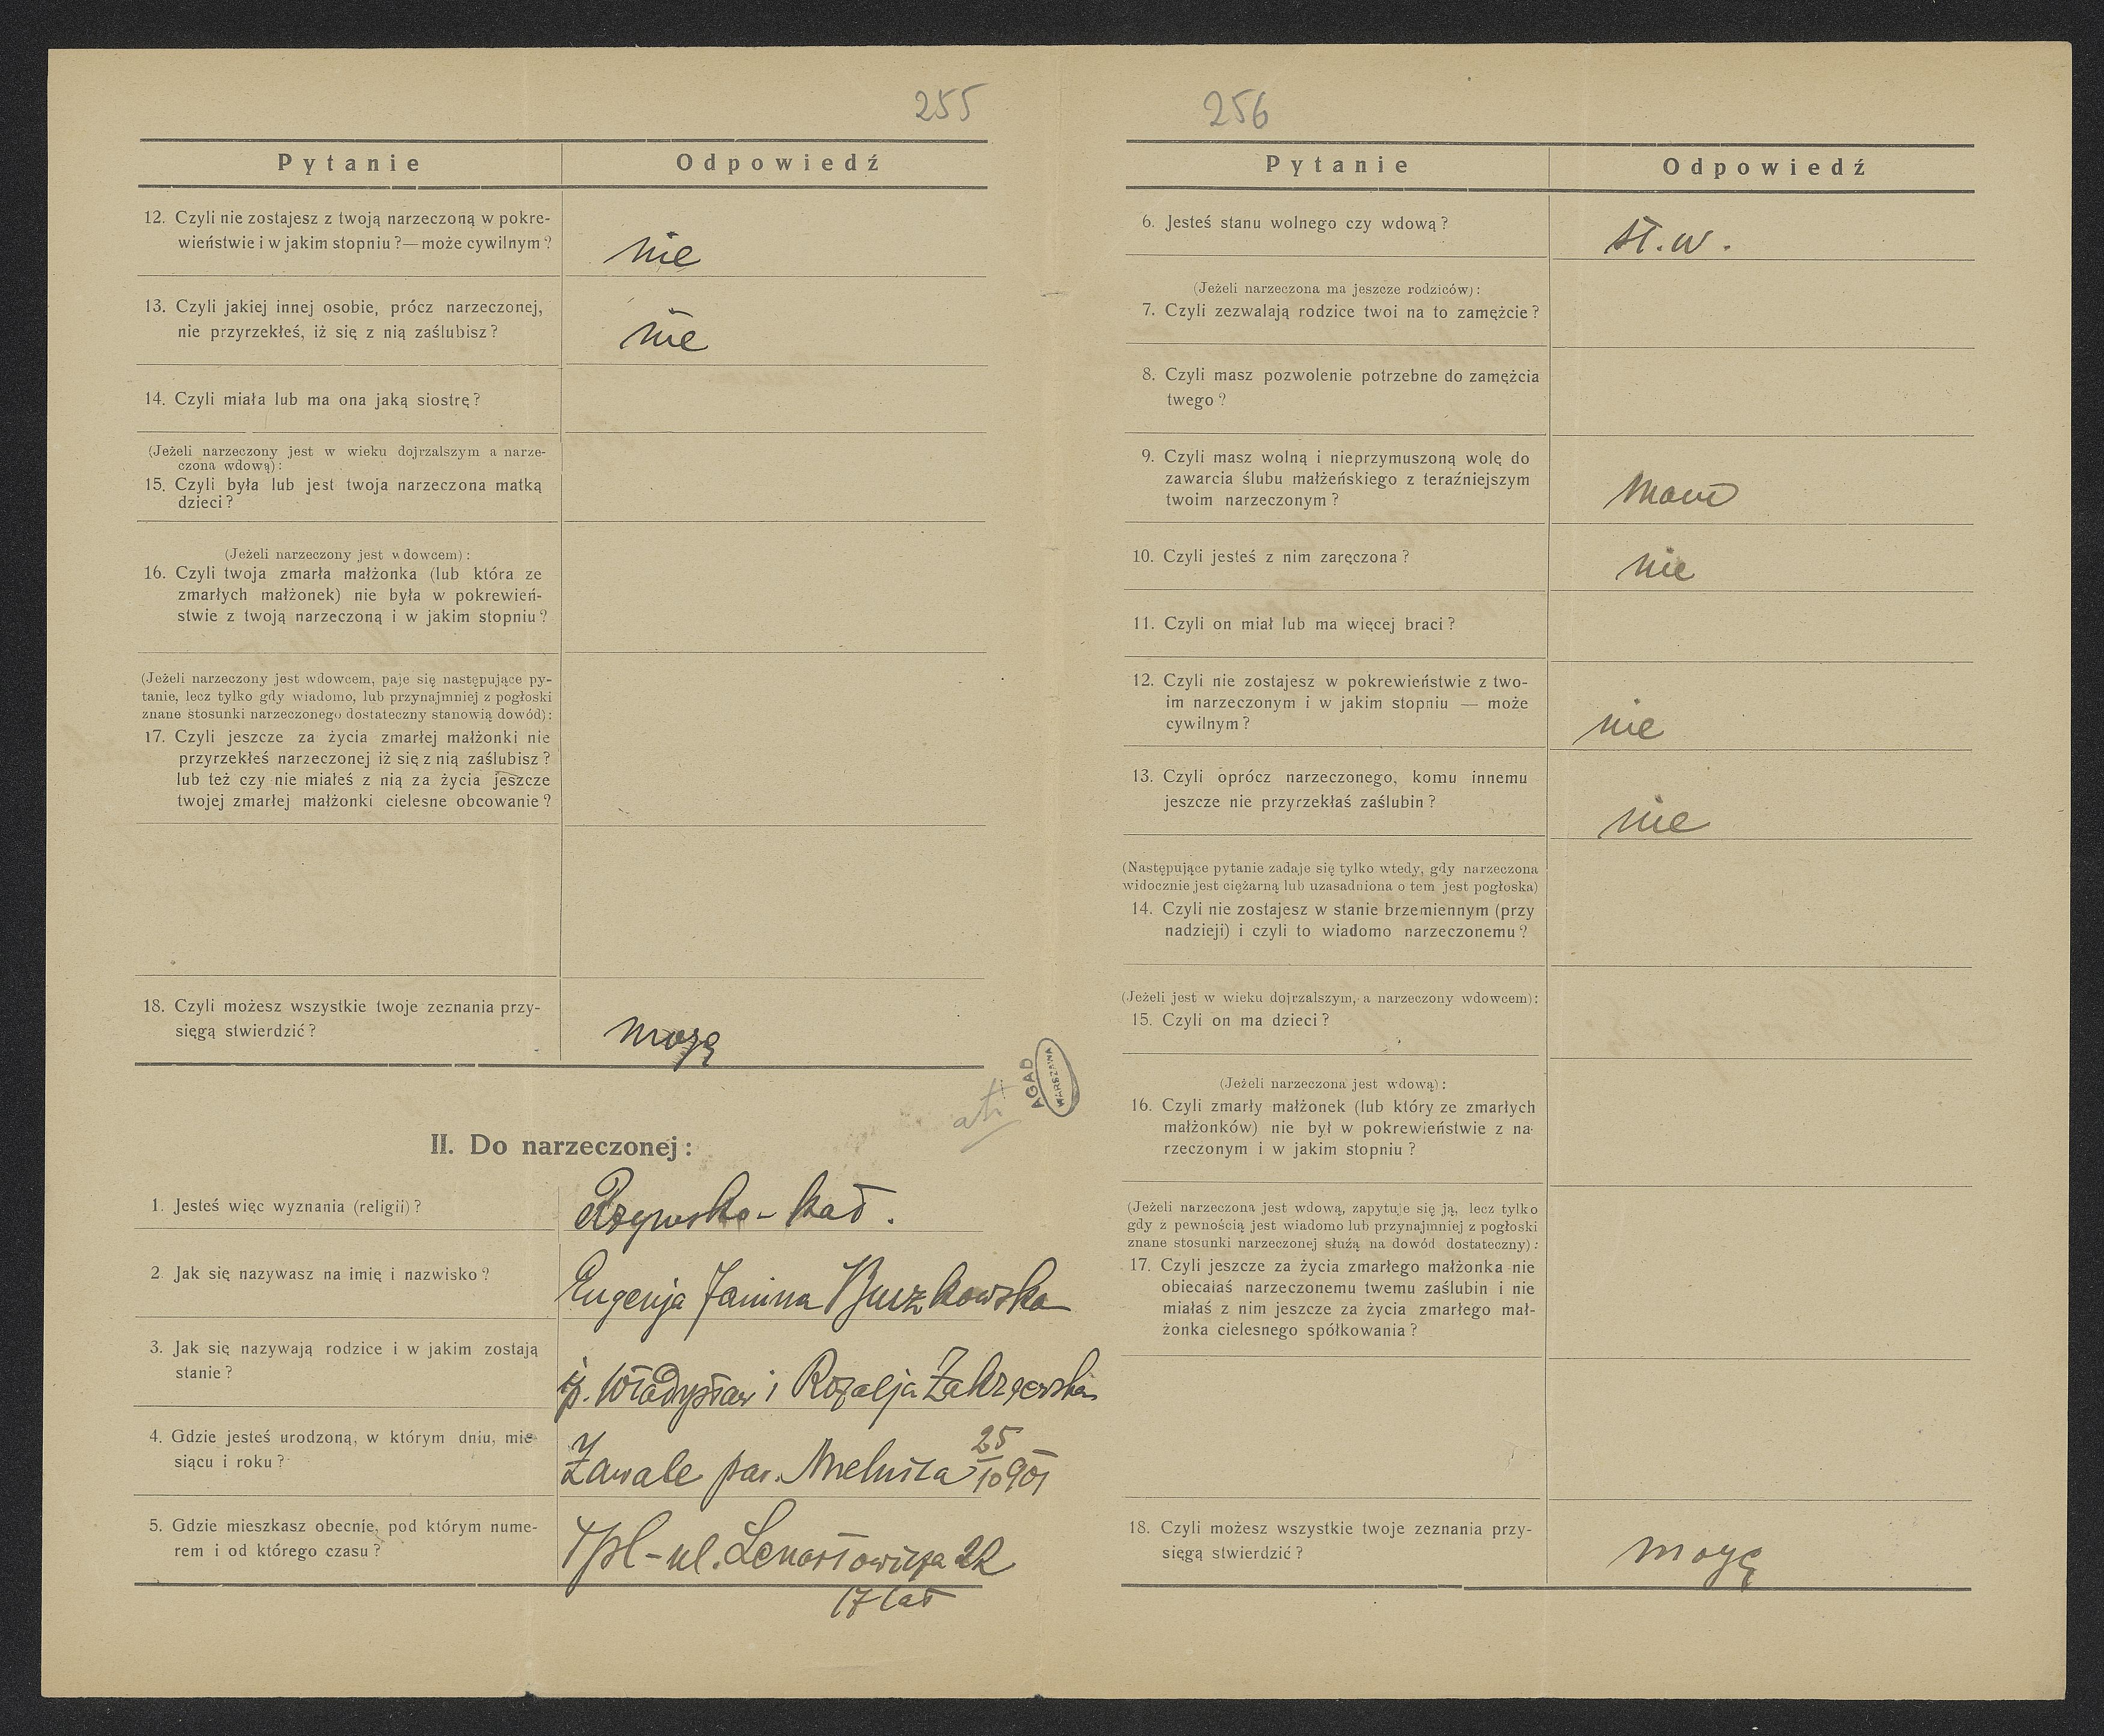 255
Pytanie Odpowiedź
12. Czyli nie zostajesz z twoją narzeczoną w pokre-
wieństwie i w jakim stopniu?—może cywilnym?
nie
13. Czyli jakiej innej osobie, prócz narzeczonej,
nie przyrzekłeś, iż się z nią zaślubisz?
nie
14. Czyli miała lub ma ona jaką siostrę?
(Jeżeli narzeczony jest w wieku dojrzalszym a narze-
czona wdową):
15. Czyli była lub jest twoja narzeczona matką
dzieci?
(Jeżeli narzeczony jest wdowcem):
16. Czyli twoja zmarła małżonka (lub która ze
zmarłych małżonek) nie była w pokrewień-
stwie z twoją narzeczoną i w jakim stopniu?
(Jeżeli narzeczony jest wdowcem, paje się następujące py-
tanie, lecz tylko gdy wiadomo, lub przynajmniej z pogłoski
znane stosunki narzeczonego dostateczny stanowią dowód):
17. Czyli jeszcze za życia zmarłej małżonki nie
przyrzekłeś narzeczonej iż się z nią zaślubisz?
lub też czy nie miałeś z nią za życia jeszcze
twojej zmarłej małżonki cielesne obcowanie?
18. Czyli możesz wszystkie twoje zeznania przy-
sięgą stwierdzić?
mogę
AGAD
WARSZAWA
II. Do narzeczonej:
1. Jesteś więc wyznania (religii)?
Rzymsko-kat.
2. Jak się nazywasz na imię i nazwisko?
Eugenja Janina Buczkowska
3. Jak się nazywają rodzice i w jakim zostają
stanie?
śp. Władysław i Rozalja Zakrzewska
4. Gdzie jesteś urodzoną, w którym dniu, mie-
siącu i roku?
Zawale par. Mielnica 25/10 901
5. Gdzie mieszkasz obecnie, pod którym nume-
rem i od którego czasu?
Tpl-ul. Lenartowicza 22
17 lat
256
Pytanie Odpowiedź
6. Jesteś stanu wolnego czy wdową?
st. w.
(Jeżeli narzeczona ma jeszcze rodziców):
7. Czyli zezwalają rodzice twoi na to zamężcie?
8. Czyli masz pozwolenie potrzebne do zamężcia
twego?
9. Czyli masz wolną i nieprzymuszoną wolę do
zawarcia ślubu małżeńskiego z teraźniejszym
twoim narzeczonym?
mam
10. Czyli jesteś z nim zaręczona?
nie
11. Czyli on miał lub ma więcej braci?
12. Czyli nie zostajesz w pokrewieństwie z two-
im narzeczonym i w jakim stopniu — może
cywilnym?
nie
13. Czyli oprócz narzeczonego, komu innemu
jeszcze nie przyrzekłaś zaślubin?
nie
(Następujące pytanie zadaje się tylko wtedy, gdy narzeczona
widocznie jest ciężarną lub uzasadniona o tem jest pogłoska)
14. Czyli nie zostajesz w stanie brzemiennym (przy
nadzieji) i czyli to wiadomo narzeczonemu?
(Jeżeli jest w wieku dojrzalszym, a narzeczony wdowcem):
15. Czyli on ma dzieci?
(Jeżeli narzeczona jest wdową):
16. Czyli zmarły małżonek (lub który ze zmarłych
małżonków) nie był w pokrewieństwie z na-
rzeczonym i w jakim stopniu?
(Jeżeli narzeczona jest wdową, zapytuje się ją, lecz tylko
gdy z pewnością jest wiadomo lub przynajmniej z pogłoski
znane stosunki narzeczonej służą na dowód dostateczny):
17. Czyli jeszcze za życia zmarłego małżonka nie
obiecałaś narzeczonemu twemu zaślubin i nie
miałaś z nim jeszcze za życia zmarłego mał-
żonka cielesnego spółkowania?
18. Czyli możesz wszystkie twoje zeznania przy-
sięgą stwierdzić?
mogę